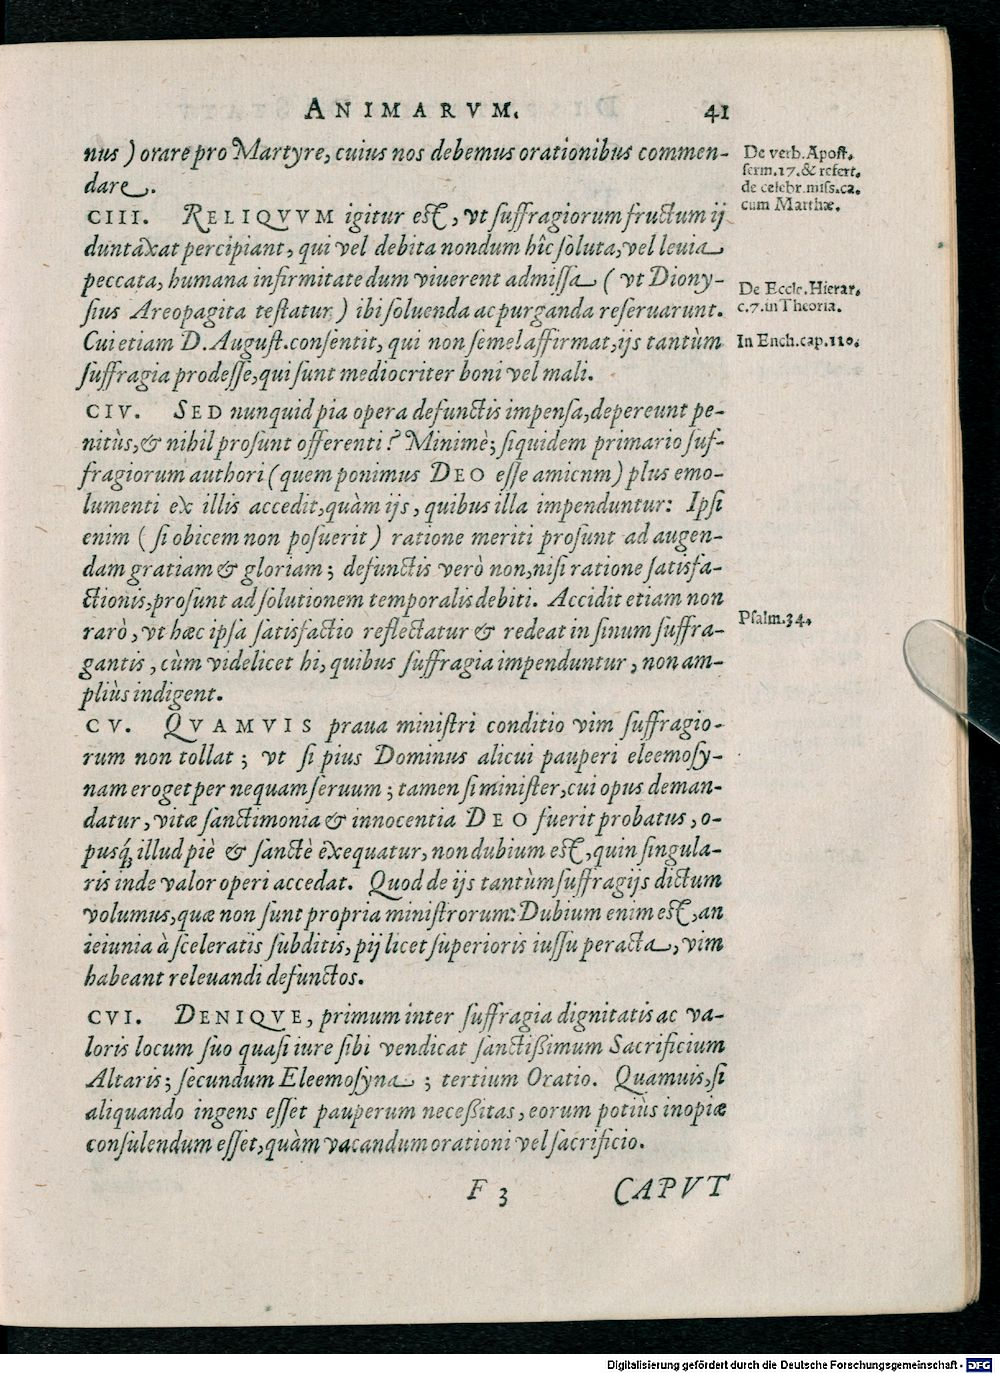 ANIMARVM. 41
nus) orare pro Martyre, cuius nos debemus orationibus commen-
dare.
De verb. Apost.
serm. 17. & refert.
de celebr. miss. ca.
cum Marthæ.
CIII. RELIQVVM igitur est, vt suffragiorum fructum ij
duntaxat percipiant, qui vel debita nondum hîc soluta, vel leuia
peccata, humana infirmitate dum viuerent admissa (vt Diony-
sius Areopagita testatur) ibi soluenda ac purganda reseruarunt.
Cui etiam D. August. consentit, qui non semel affirmat, ijs tantùm
suffragia prodesse, qui sunt mediocriter boni vel mali.
De Eccle. Hierar.
c. 7. in Theoria.
In Ench. cap. 110.
CIV. SED nunquid pia opera defunctis impensa, depereunt pe-
nitùs, & nihil prosunt offerenti? Minimè; siquidem primario suf-
fragiorum authori (quem ponimus DEO esse amicnm) plus emo-
lumenti ex illis accedit, quàm ijs, quibus illa impenduntur: Ipsi
enim (si obicem non posuerit) ratione meriti prosunt ad augen-
dam gratiam & gloriam; defunctis verò non, nisi ratione satisfa-
ctionis, prosunt ad solutionem temporalis debiti. Accidit etiam non
rarò, vt hæc ipsa satisfactio reflectatur & redeat in sinum suffra-
gantis, cùm videlicet hi, quibus suffragia impenduntur, non am-
pliùs indigent.
Psalm. 34.
CV. QVAMVIS praua ministri conditio vim suffragio-
rum non tollat; vt si pius Dominus alicui pauperi eleemosy-
nam eroget per nequam seruum; tamen si minister, cui opus deman-
datur, vitæ sanctimonia & innocentia DEO fuerit probatus, o-
pusq́; illud piè & sanctè exequatur, non dubium est, quin singula-
ris inde valor operi accedat. Quod de ijs tantùm suffragijs dictum
volumus, quæ non sunt propria ministrorum: Dubium enim est, an
ieiunia à sceleratis subditis, pij licet superioris iussu peracta, vim
habeant releuandi defunctos.
CVI. DENIQVE, primum inter suffragia dignitatis ac va-
loris locum suo quasi iure sibi vendicat sanctißimum Sacrificium
Altaris; secundum Eleemosyna; tertium Oratio. Quamuis, si
aliquando ingens esset pauperum neceßitas, eorum potiùs inopiæ
consulendum esset, quàm vacandum orationi vel sacrificio.
F 3 CAPVT
Digitalisierung gefördert durch die Deutsche Forschungsgemeinschaft - DFG